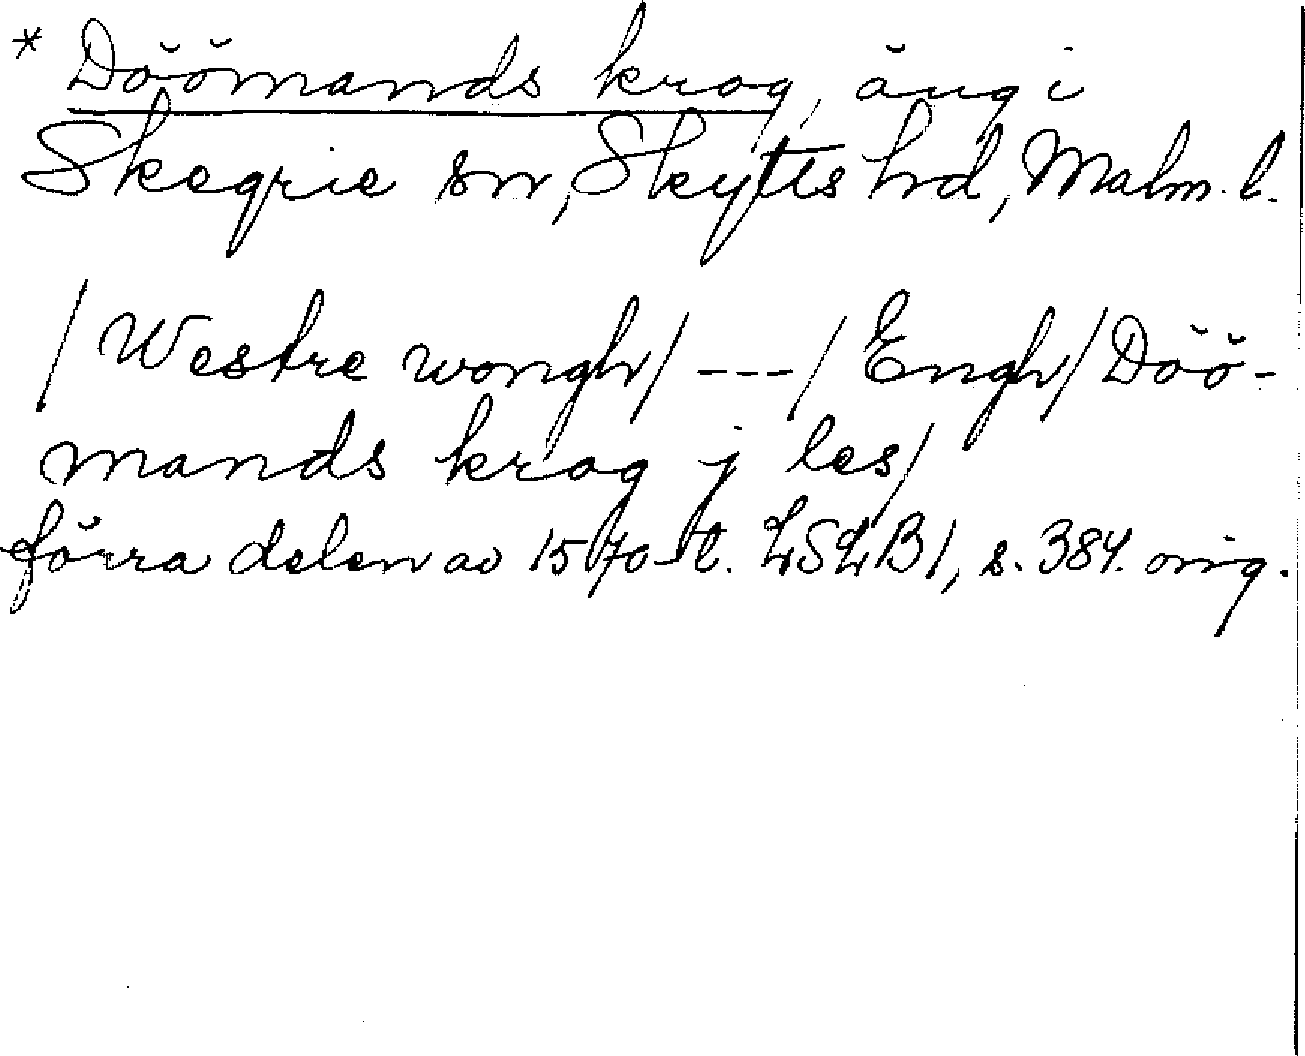 * Döömands krog, äng i
Skegrie sn, Skytts hd, Malm. l.
/Westre wongh/ --- /Engh/ Döö-
mands krog j les/
förra delen av 1570-t. LSLB1, s. 384. orig.